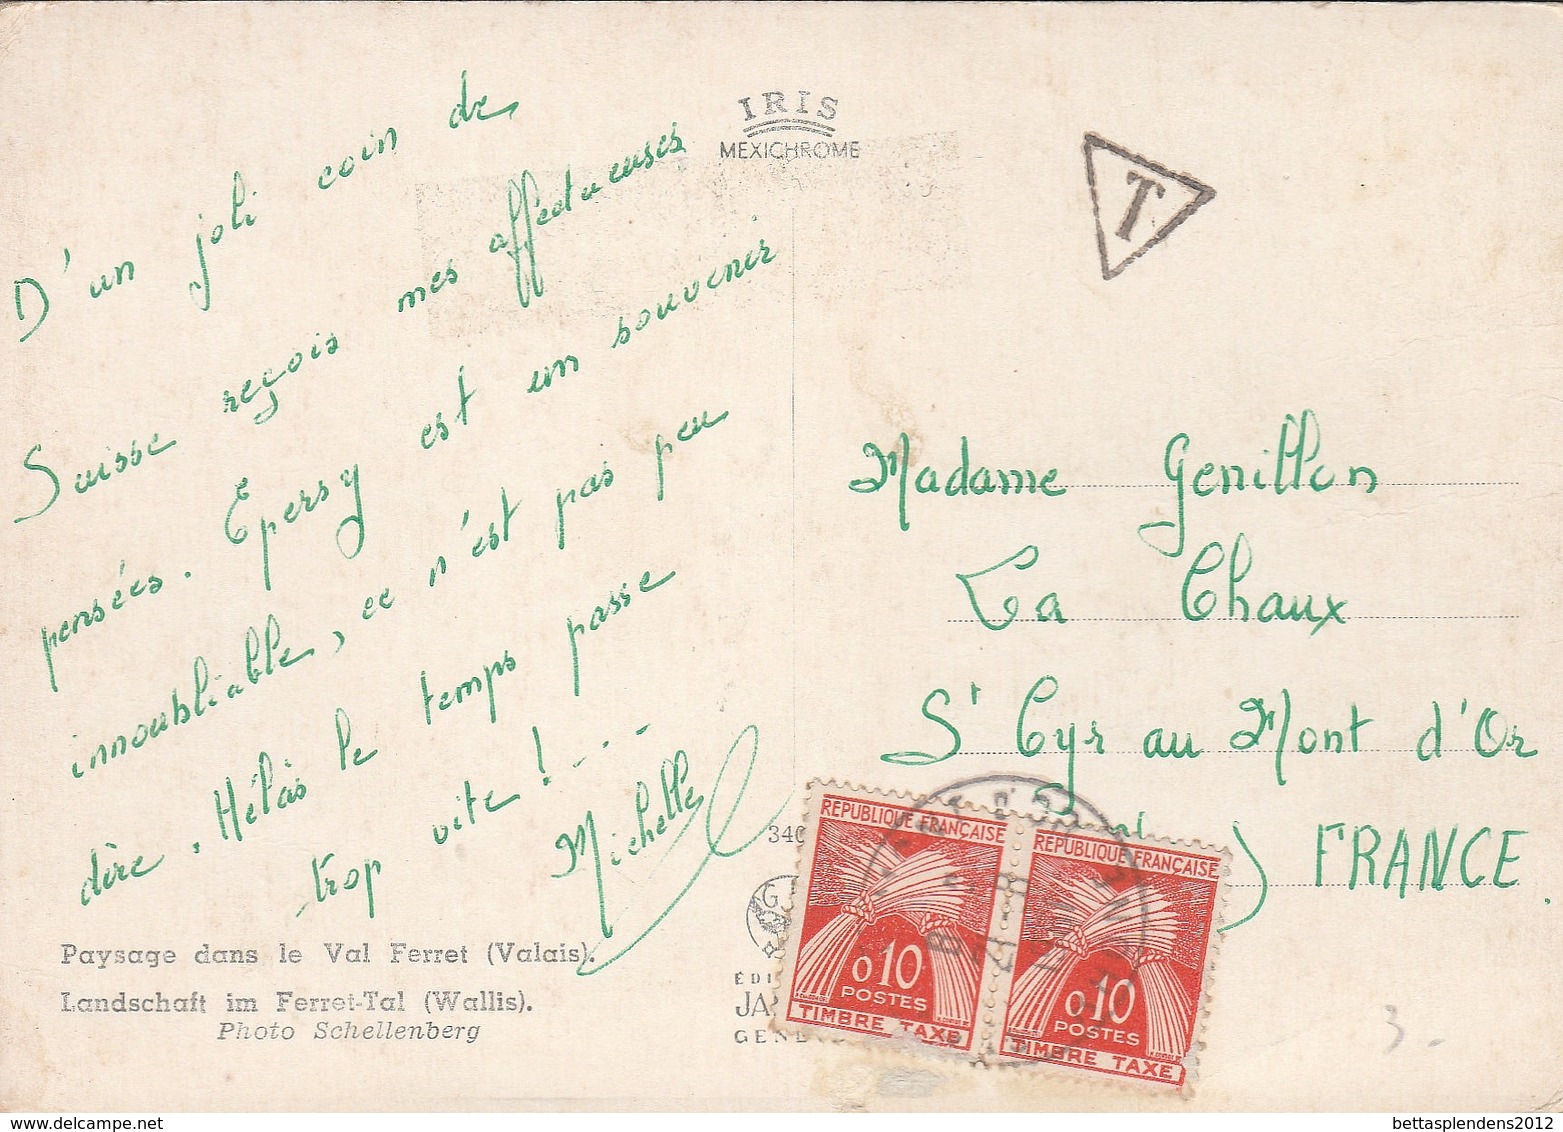 D'un joli coin de
Suisse reçois mes affectueuses
pensées. Epersy est un souvenir
innoubliable, ce n'est pas peu
dire. Hélas le temps passe
trop vite! ...
Michelle
IRIS
MEXICHROME
T
Madame Genillon
La Chaux
St Cyr au Mont d'Or
) FRANCE
340
REPUBLIQUE FRANÇAISE
0,10
POSTES
TIMBRE TAXE
REPUBLIQUE FRANÇAISE
0,10
POSTES
TIMBRE TAXE
Paysage dans le Val Ferret (Valais).
Landschaft im Ferret-Tal (Wallis).
Photo Schellenberg
3.-
bettasplendens2012